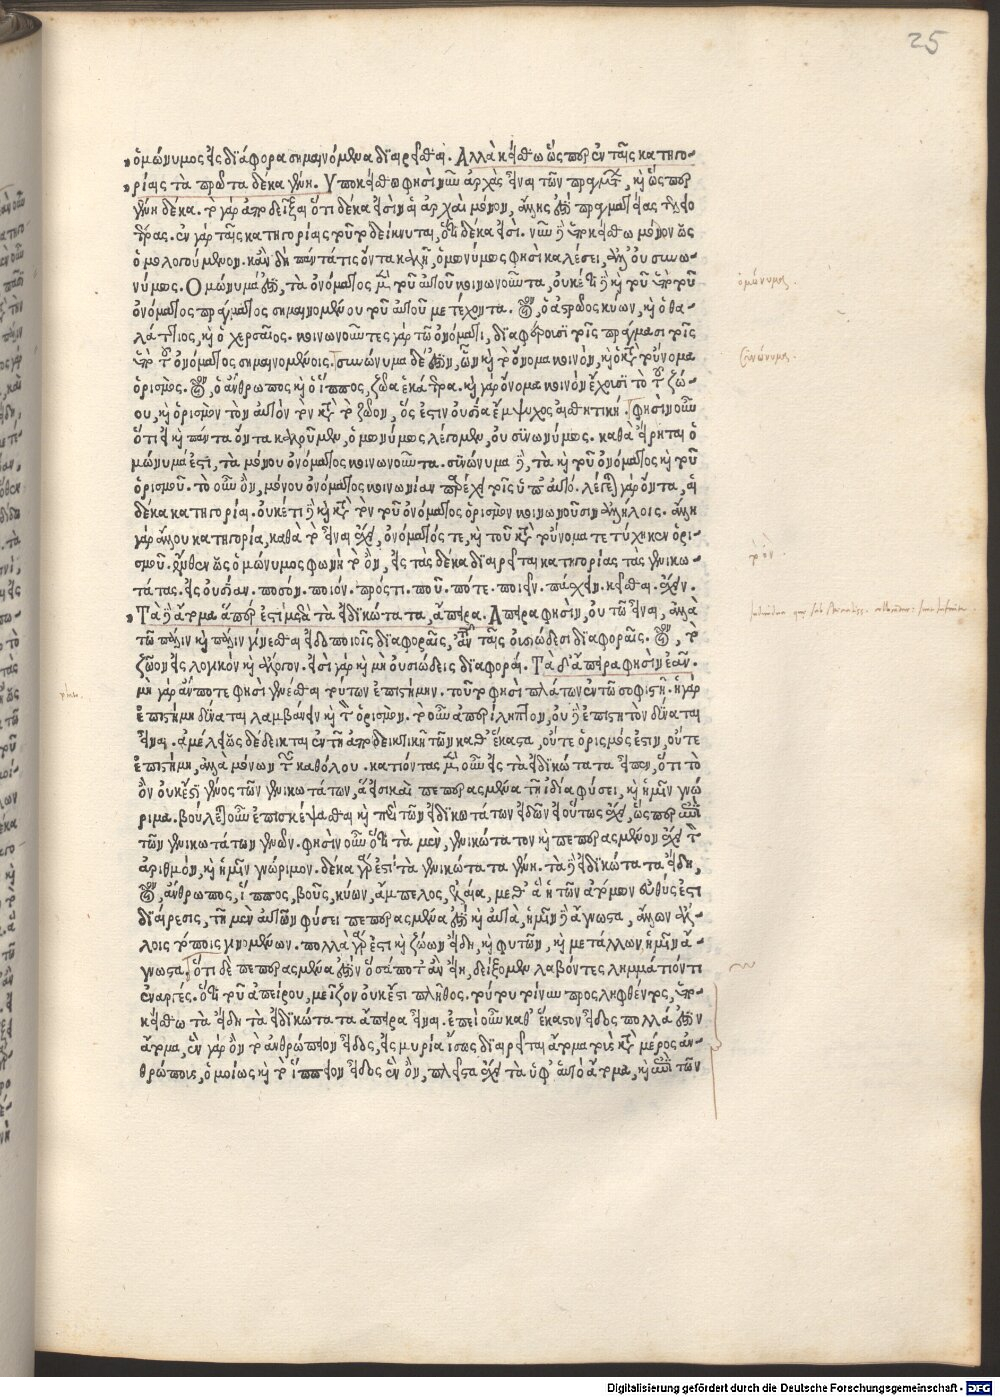 »ὁμώνυμος εἰς διάφορα σημαινόμενα διαιρεῖσθαι. Ἀλλὰ κείσθω ὥσπερ ἐν ταῖς κατηγο-
»ρίαις τὰ πρῶτα δέκα γένη. Ὑποκείσθω φησὶν οὖν ἀρχὰς εἶναι τῶν πραγμάτων, καὶ ὥσπερ
γένη δέκα. τὸ γὰρ ἀποδεῖξαι ὅτι δέκα εἰσὶν αἱ ἀρχαὶ μόνον, ἄλλης ἐστὶ πραγματείας τελεω
τέρας. ἐν γὰρ ταῖς κατηγορίαις τοῦτο δείκνυται, ὅτι δέκα εἰσί. νῦν δὲ ὑποκείσθω μόνον ὡς
ὁμολογούμενον. κἂν δὴ πάντά τις ὄντα καλῇ, ὁμωνύμως φησὶ καλέσει, ἀλλ' οὐ συνω-
νύμως. Ὁμώνυμα ἐστὶ, τὰ ὀνόματος μὲν τοῦ αὐτοῦ κοινωνοῦντα, οὐκέτι δὲ καὶ τοῦ ὑπὸ τοῦ
ὀνόματος πράγματος σημαινομένου τοῦ αὐτοῦ μετέχοντα. οἷον, ὁ ἀστρῷος κύων, καὶ ὁ θα-
λάττιος, καὶ ὁ χερσαῖος. κοινωνοῦντες γὰρ τῷ ὀνόματι, διαφέρουσι τοῖς πράγμασι τοῖς
ὑπὸ τοῦ ὀνόματος σημαινομένοις. συνώνυμα δέ ἐστιν, ὧν καὶ τὸ ὄνομα κοινὸν, καὶ ὁ κατὰ τοὔνομα
ὁρισμός. οἷον, ὁ ἄνθρωπος καὶ ὁ ἵππος, ζῶα ἑκάτερα. καὶ γὰρ ὄνομα κοινὸν ἔχουσι τὸ τοῦ ζώ-
ου, καὶ ὁρισμὸν τὸν αὐτὸν τὸν κατὰ τὸ ζῶον, ὅς ἐστιν οὐσία ἔμψυχος αἰσθητική. Φησὶν οὖν
ὅτι εἰ καὶ πάντα ὄντα καλοῦμεν, ὁμωνύμως λέγομεν, οὐ συνωνύμως. καθὰ εἴρηται ὁ
μώνυμά ἐστι, τὰ μόνου ὀνόματος κοινωνοῦντα. συνώνυμα δὲ, τὰ καὶ τοῦ ὀνόματος καὶ τοῦ
ὁρισμοῦ. τὸ οὖν ὂν, μόνου ὀνόματος κοινωνίαν παρέχει τοῖς ὑπ' αὐτό. λέγεται γὰρ ὄντα, αἱ
δέκα κατηγορίαι. οὐκέτι δὲ καὶ κατὰ τὸν τοῦ ὀνόματος ὁρισμὸν κοινωνοῦσιν ἀλλήλοις. ἄλλη
γὰρ ἄλλου κατηγορία, καθὰ τὸ εἶναι ἔχει, ὀνόματός τε, καὶ τοῦ κατὰ τοὔνομα τετύχηκεν ὁρι-
σμοῦ. ὅθεν ὡς ὁμώνυμος φωνὴ τὸ ὂν, εἰς τὰς δέκα διαιρεῖται κατηγορίας τὰς γενικω-
τάτας. εἰς οὐσίαν. ποσόν. ποιόν. πρός τι. ποῦ. πότε. ποιεῖν. πάσχειν. κεῖσθαι. ἔχειν.
»Τὰ δὲ ἄτομα ἅπερ ἐστὶ μετὰ τὰ εἰδικώτατα, ἄπειρα. Ἄπειρα φησὶν, οὕτω εἶναι, ἀλλὰ
τῷ πάλιν καὶ πάλιν γίνεσθαι εἰδοποιοῖς διαφοραῖς, ἀντὶ ταῖς οὐσιώδεσι διαφοραῖς. οἷον, τὸ
ζῶον εἰς λογικὸν καὶ ἄλογον. εἰσὶ γὰρ καὶ μὴ οὐσιώδεις διαφοραί. Τὰ δ' ἄπειρα φησὶν ἐᾶν.
μὴ γὰρ ἄν ποτε φησὶ γενέσθαι τούτων ἐπιστήμην. τοῦτο φησὶ πλάτων ἐν τῷ σοφιστῇ. ἡ γὰρ
ἐπιστήμη δύναται λαμβάνειν καὶ τὸν ὁρισμὸν. τὸ οὖν ἀπερίληπτον, οὐδὲ ἐπιστητὸν δύναται
εἶναι. ἀμέλει ὡς δέδεικται ἐν τῇ ἀποδεικτικῇ τῶν καθ' ἕκαστα, οὔτε ὁρισμός ἐστιν, οὔτε
ἐπιστήμη, ἀλλὰ μόνων τῶν καθόλου. κατιόντας μὲν οὖν εἰς τὰ εἰδικώτατα εἶπεν, ὅτι τὸ
ὂν οὐκέτι γένος τῶν γενικωτάτων, ἅ εἰσι καὶ πεπερασμένα τῇ ἰδίᾳ φύσει, καὶ ἡμῖν γνώ
ριμα. βούλεται οὖν ἐπισκέψασθαι καὶ περὶ τῶν εἰδικωτάτων εἰδῶν εἰ οὕτως ἔχει, ὥσπερ ἐπὶ
τῶν γενικωτάτων γενῶν. φησὶν οὖν ὅτι τὰ μὲν, γενικώτατον καὶ πεπερασμένον ἔχει τὸν
ἀριθμόν, καὶ ἡμῖν γνώριμον. δέκα γάρ ἐστι τὰ γενικώτατα γένη. τὰ δὲ εἰδικώτατα εἴδη,
οἷον, ἄνθρωπος, ἵππος, βοῦς, κύων, ἄμπελος, ἐλαία, μεθ' ἃ ἡ τῶν ἀτόμων εὐθύς ἐστι
διαίρεσις, τῇ μὲν αὐτῶν φύσει πεπερασμένα ἐστὶ καὶ αὐτὰ, ἡμῖν δὲ ἄγνωστα, ἄλλων ἐν ἄλ-
λοις τόποις γινομένων. πολλὰ γάρ ἐστι καὶ ζώων εἴδη, καὶ φυτῶν, καὶ μετάλλων, ἡμῖν ἄ-
γνωστα. ὅτι δὲ πεπερασμένα ἐστὶν ὅσα ποτ' ἂν εἴη, δείξομεν λαβόντες λημμάτιόν τι
ἐναργές. ὅτι τοῦ ἀπείρου, μεῖζον οὐκ ἔστι πλῆθος. τούτου τοίνυν προσληφθέντος, ὑπο-
κείσθω τὰ εἴδη τὰ εἰδικώτατα ἄπειρα εἶναι. ἐπεὶ οὖν καθ' ἕκαστον εἶδος πολλά ἐστιν
ἄτομα, ἓν γὰρ ὂν τὸ ἀνθρώπειον εἶδος, εἰς μυρία ἴσως διαιρεῖται ἄτομα τοὺς κατὰ μέρος ἀν-
θρώπους, ὁμοίως καὶ τὸ ἵππειον εἶδος ἓν ὂν, πλεῖστα ἔχει τὰ ὑφ' αὑτὸ ἄτομα, καὶ ἐπὶ τῶν
25
ὁμώνυμα.
συνώνυμα.
τὸ ὄν.
Digitalisierung gefördert durch die Deutsche Forschungsgemeinschaft - DFG